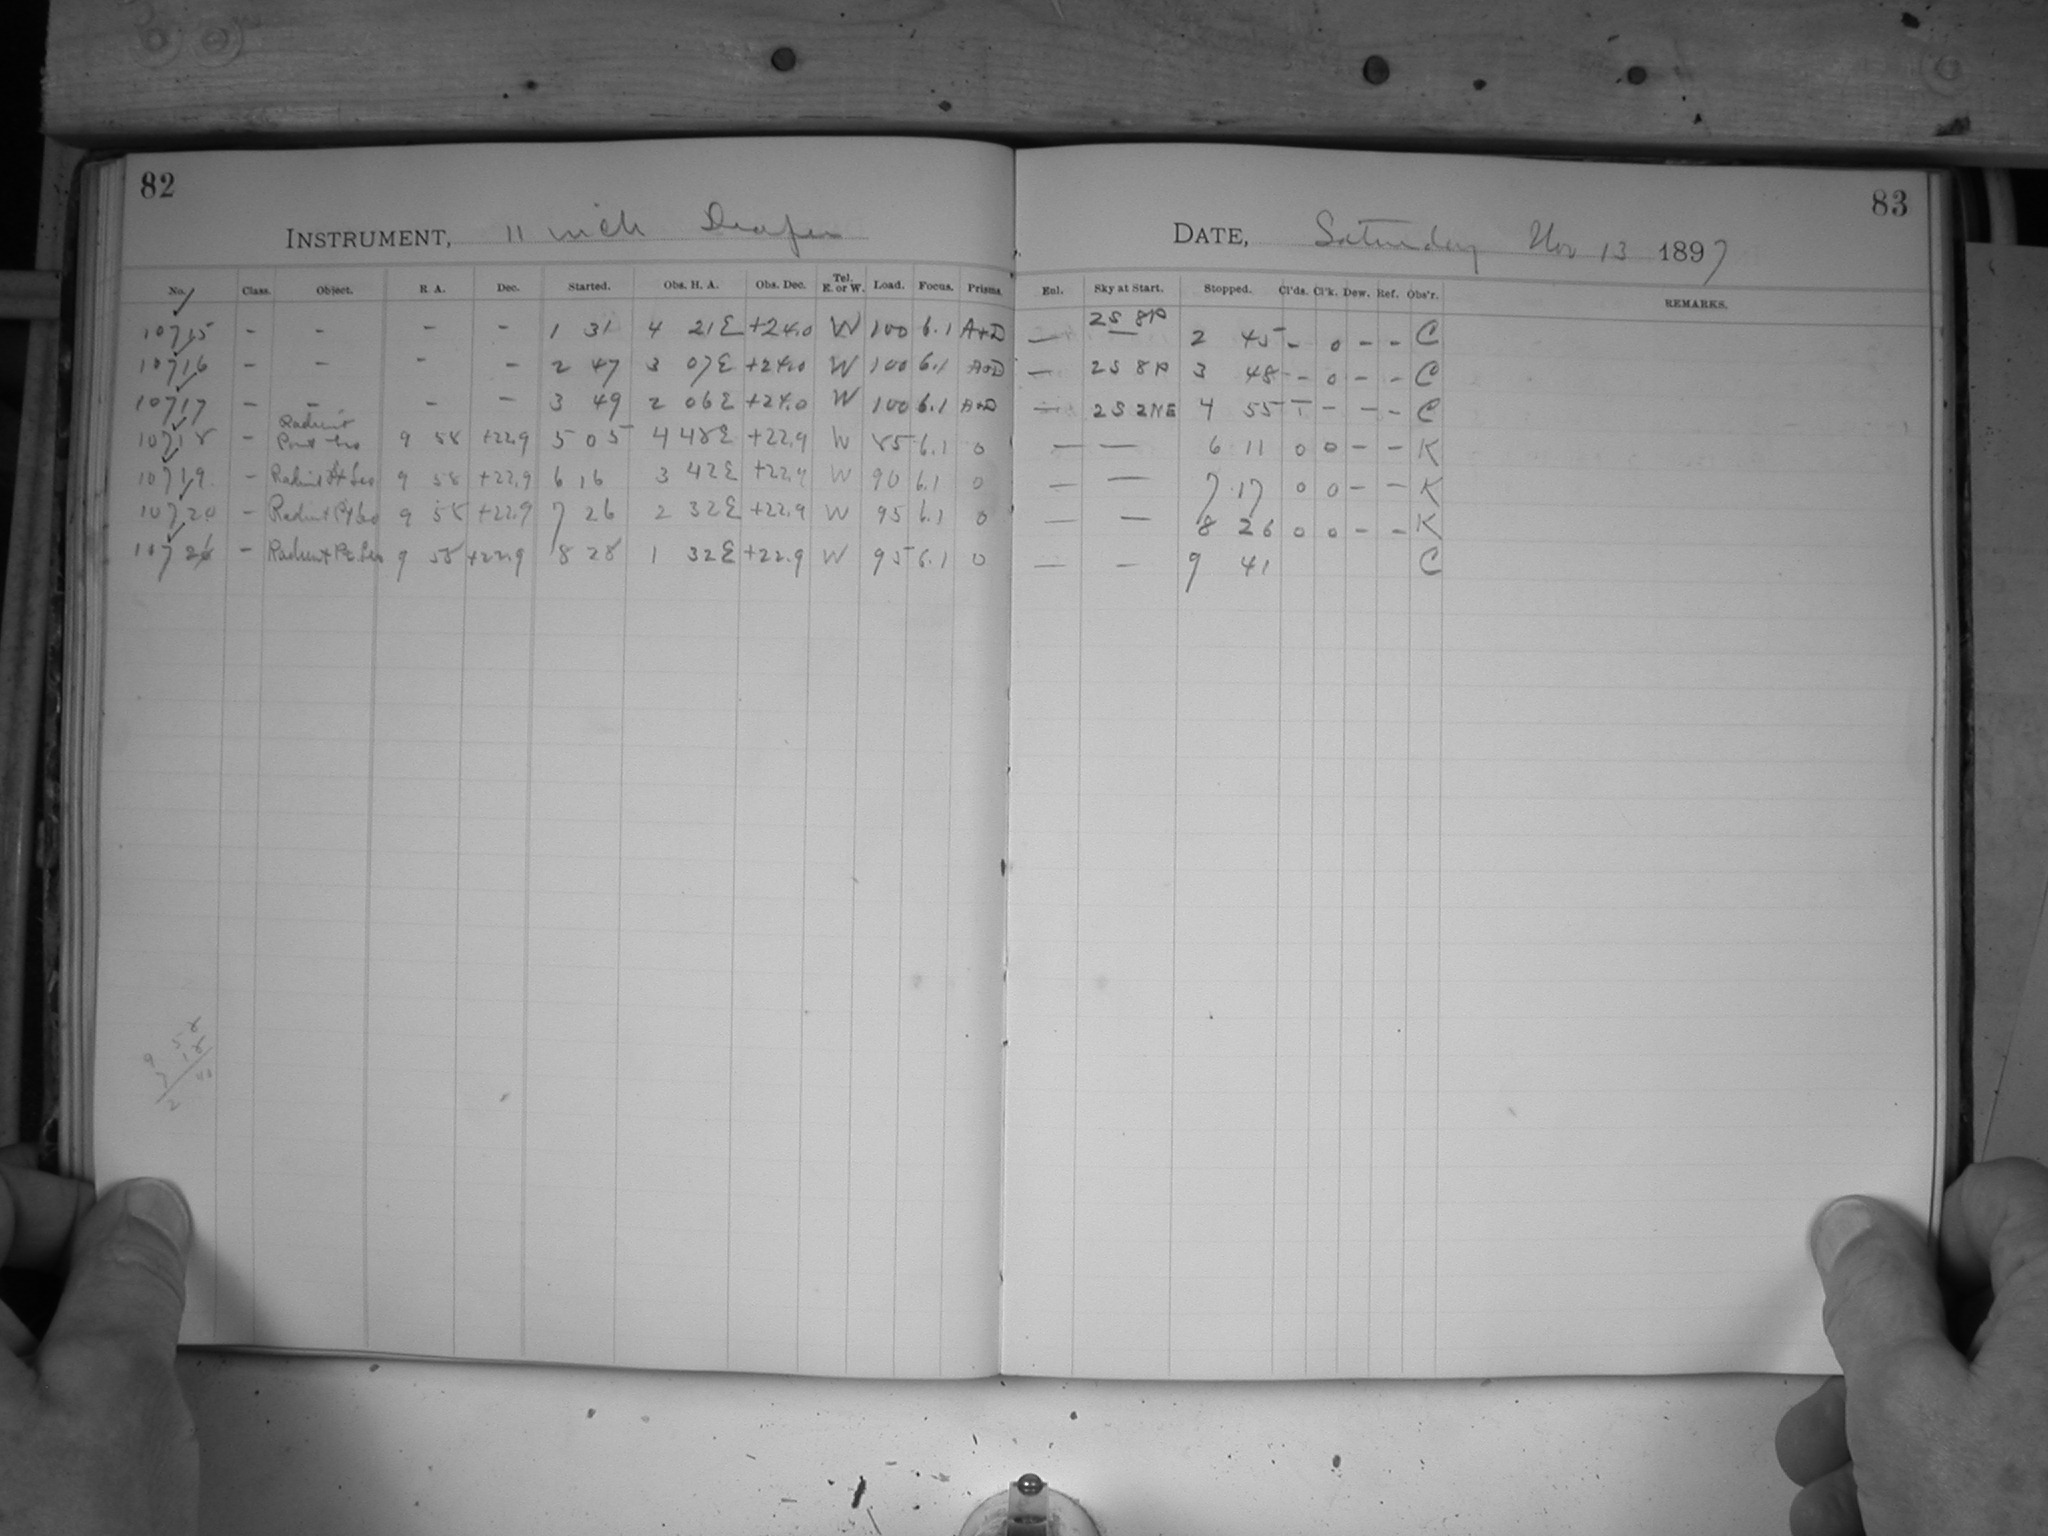 82
INSTRUMENT, 11 inch Draper
No. Class. Object. R. A. Dec. Started. Obs. H. A. Obs. Dec. Tel. E. or W. Load. Focus. Prisms.
10715 - - - - 1 31 4 21E +24.0 W 100 6.1 A+D
10716 - - - - 2 47 3 07E +24.0 W 100 6.1 A+D
10717 - - - - 3 49 2 06E +24.0 W 100 6.1 A+D
10718 - Radiant Point Leo 9 58 +22.9 5 05 4 48E +22.9 W 85 6.1 0
10719 - Radiant Pt Leo 9 58 +22.9 6 16 3 42E +22.9 W 90 6.1 0
10720 - Radiant Pt Leo 9 58 +22.9 7 26 2 32E +22.9 W 95 6.1 0
1072 - Radiant Pt. Leo 9 58 +22.9 8 28 1 32E +22.9 W 95 6.1 0
9 58
7 18
2 40
83
DATE, Saturday Nov 13 1897
Enl. Sky at Start. Stopped. Cl'ds. Cl'k. Dew. Ref. Obs'r. REMARKS.
— 2S 8P 2 45 - 0 - - C
— 2S 8P 3 48 - 0 - - C
— 2S 2NE 4 55 - - - - C
— — 6 11 0 0 - - K
— — 7 17 0 0 - - K
— — 8 26 0 0 - - K
— — 9 41 C